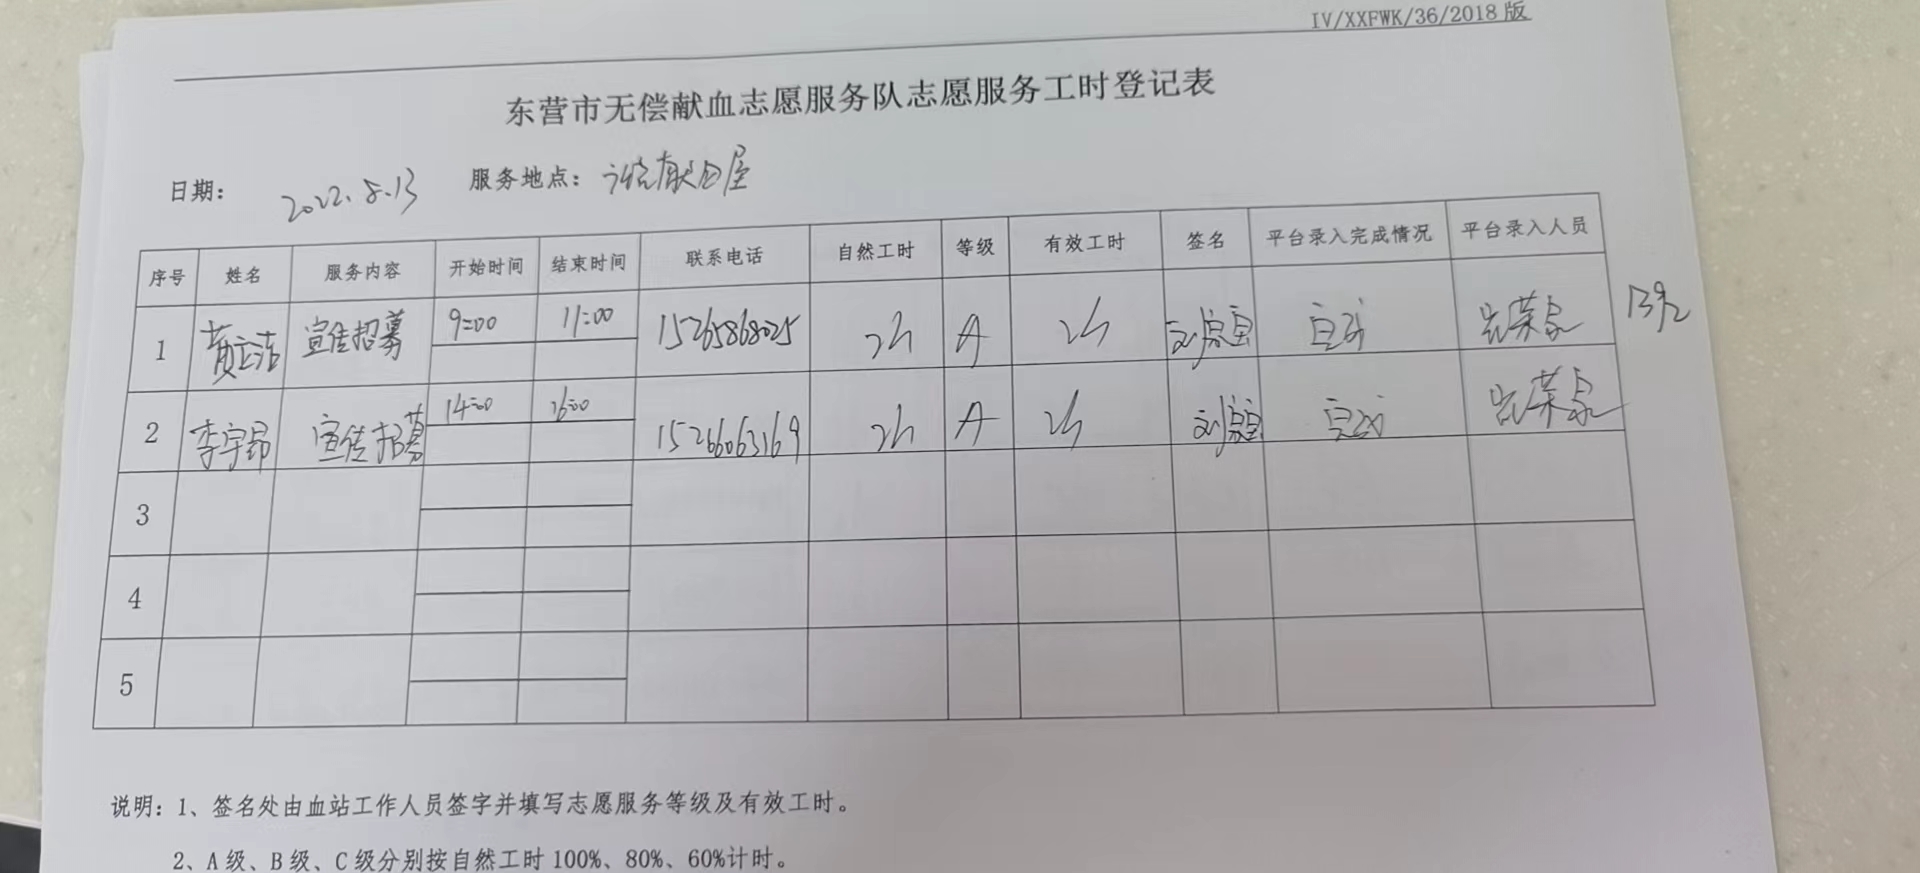 IV/XXFWK/36/2018版
东营市无偿献血志愿服务队志愿服务工时登记表
日期: 2022.8.13 服务地点: 献血屋
序号 姓名 服务内容 开始时间 结束时间 联系电话 自然工时 等级 有效工时 签名 平台录入完成情况 平台录入人员
1 宣传招募 9:00 11:00 15265868025 2h A 2h 完成
2 李宇昂 宣传招募 14:00 16:00 15266063169 2h A 2h 完成
3
4
5
说明: 1、签名处由血站工作人员签字并填写志愿服务等级及有效工时。
2、A级、B级、C级分别按自然工时100%、80%、60%计时。